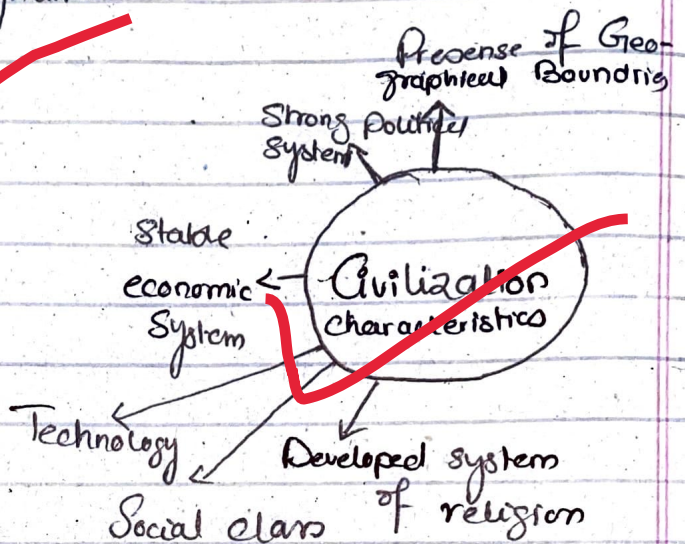 Presense of Geo-
graphical Boundris
Strong political
System
Stable
economic
System
Civilization
characteristics
Technology
Social class
Developed system
of religion